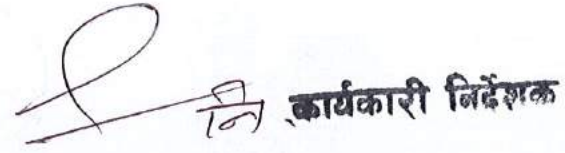 नि. कार्यकारी निर्देशक